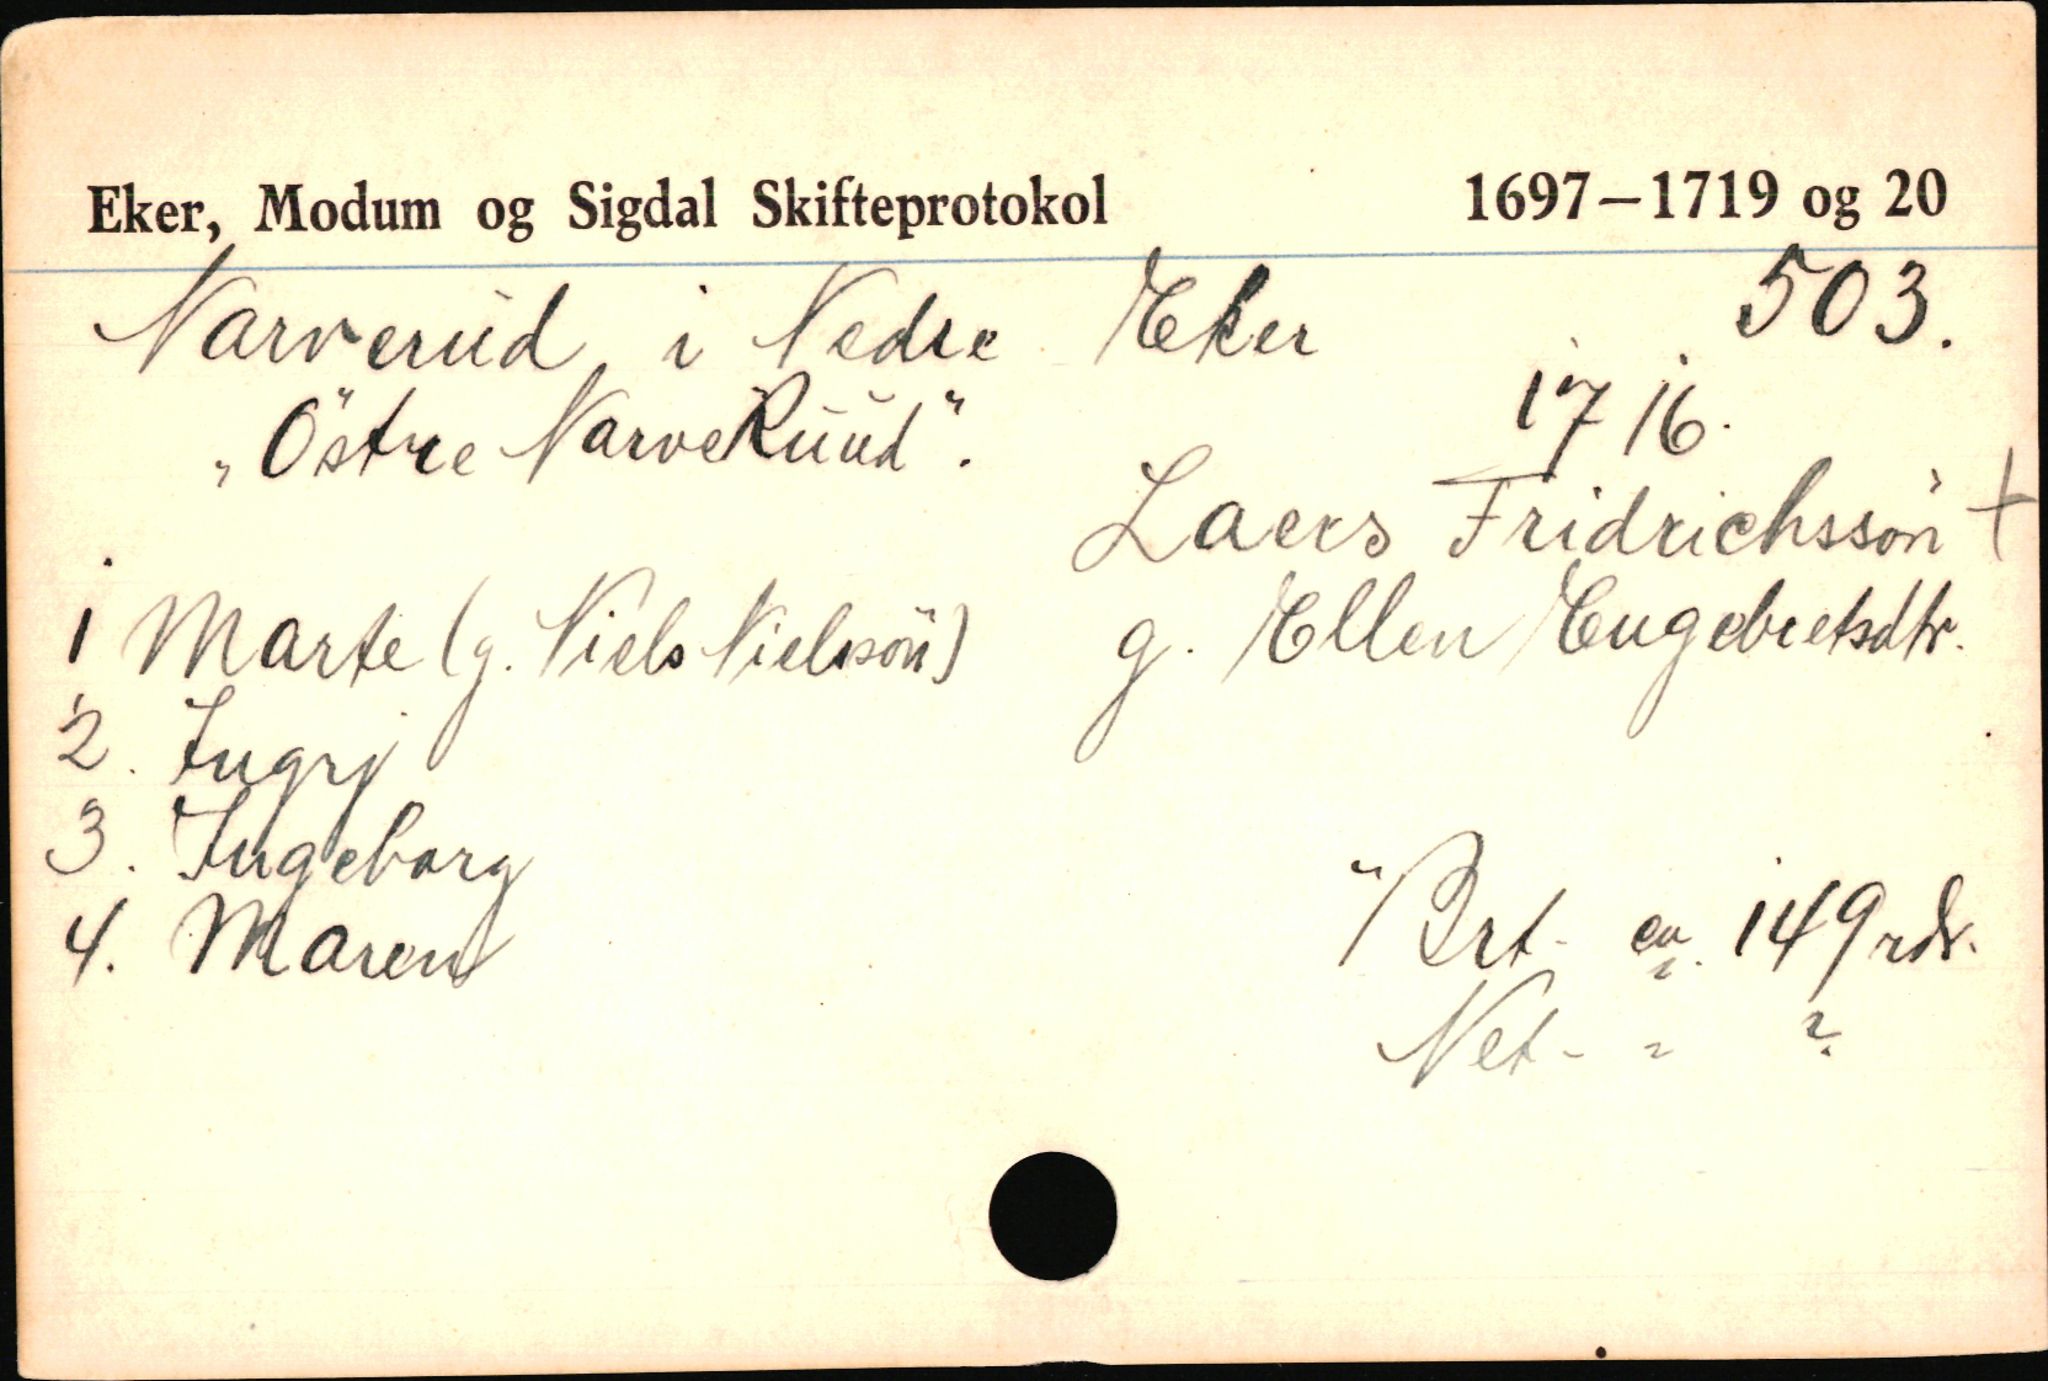 Eker, Modum og Sigdal Skifteprotokol 1697—1719 og 20
Narverud i Nedre Eker 503.
"Östre NarveRuud". 1716.
Laers Fridrichssön +
1 Marte (g. Niels Nielssön) g. Ellen Engebretsdtr.
2. Ingrj
3. Ingeborg
4. Maren
Brt- ca. 149 rdr.
Net- " ?